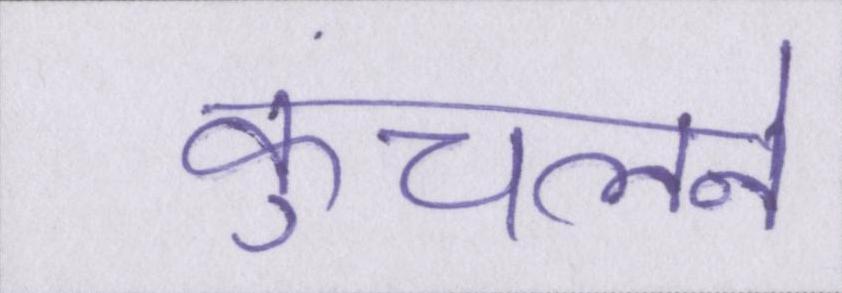 कुंचलने